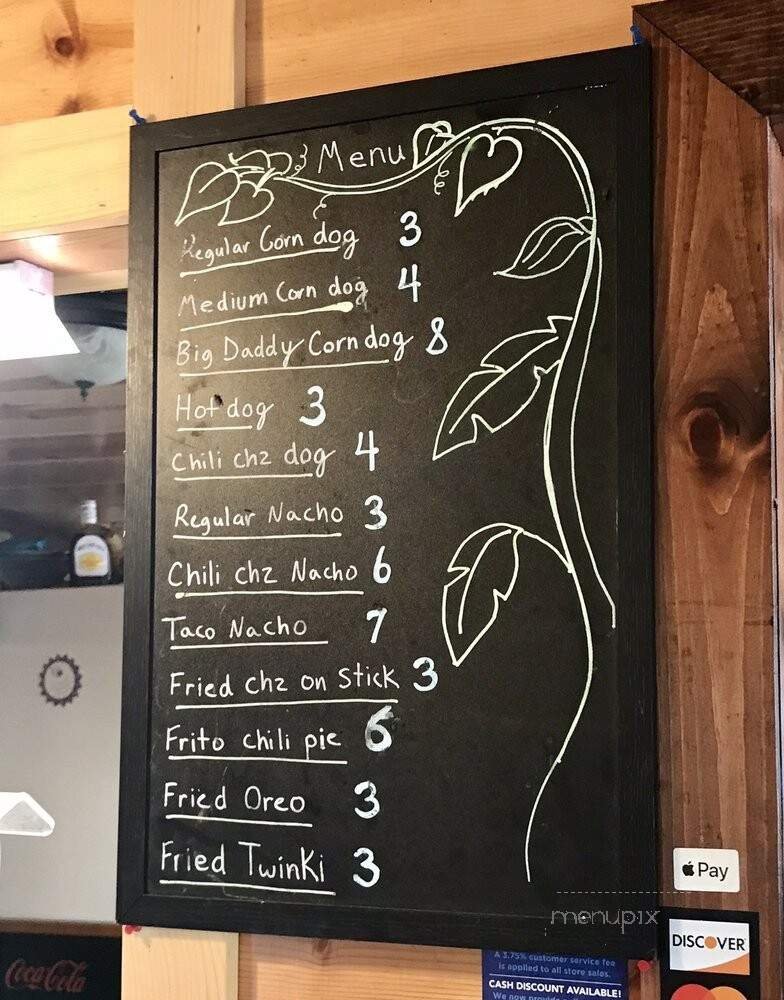 Menu
Regular Corn dog 3
Medium Corn dog 4
Big Daddy Corn dog 8
Hot dog 3
Chili chz dog 4
Regular Nacho 3
Chili chz Nacho 6
Taco Nacho 7
Fried chz on Stick 3
Frito chili pie 6
Fried Oreo 3
Fried Twinki 3
Pay
menupix
DISCOVER
A 3.75% customer service fee
is applied to all store sales.
CASH DISCOUNT AVAILABLE!
Coca-Cola